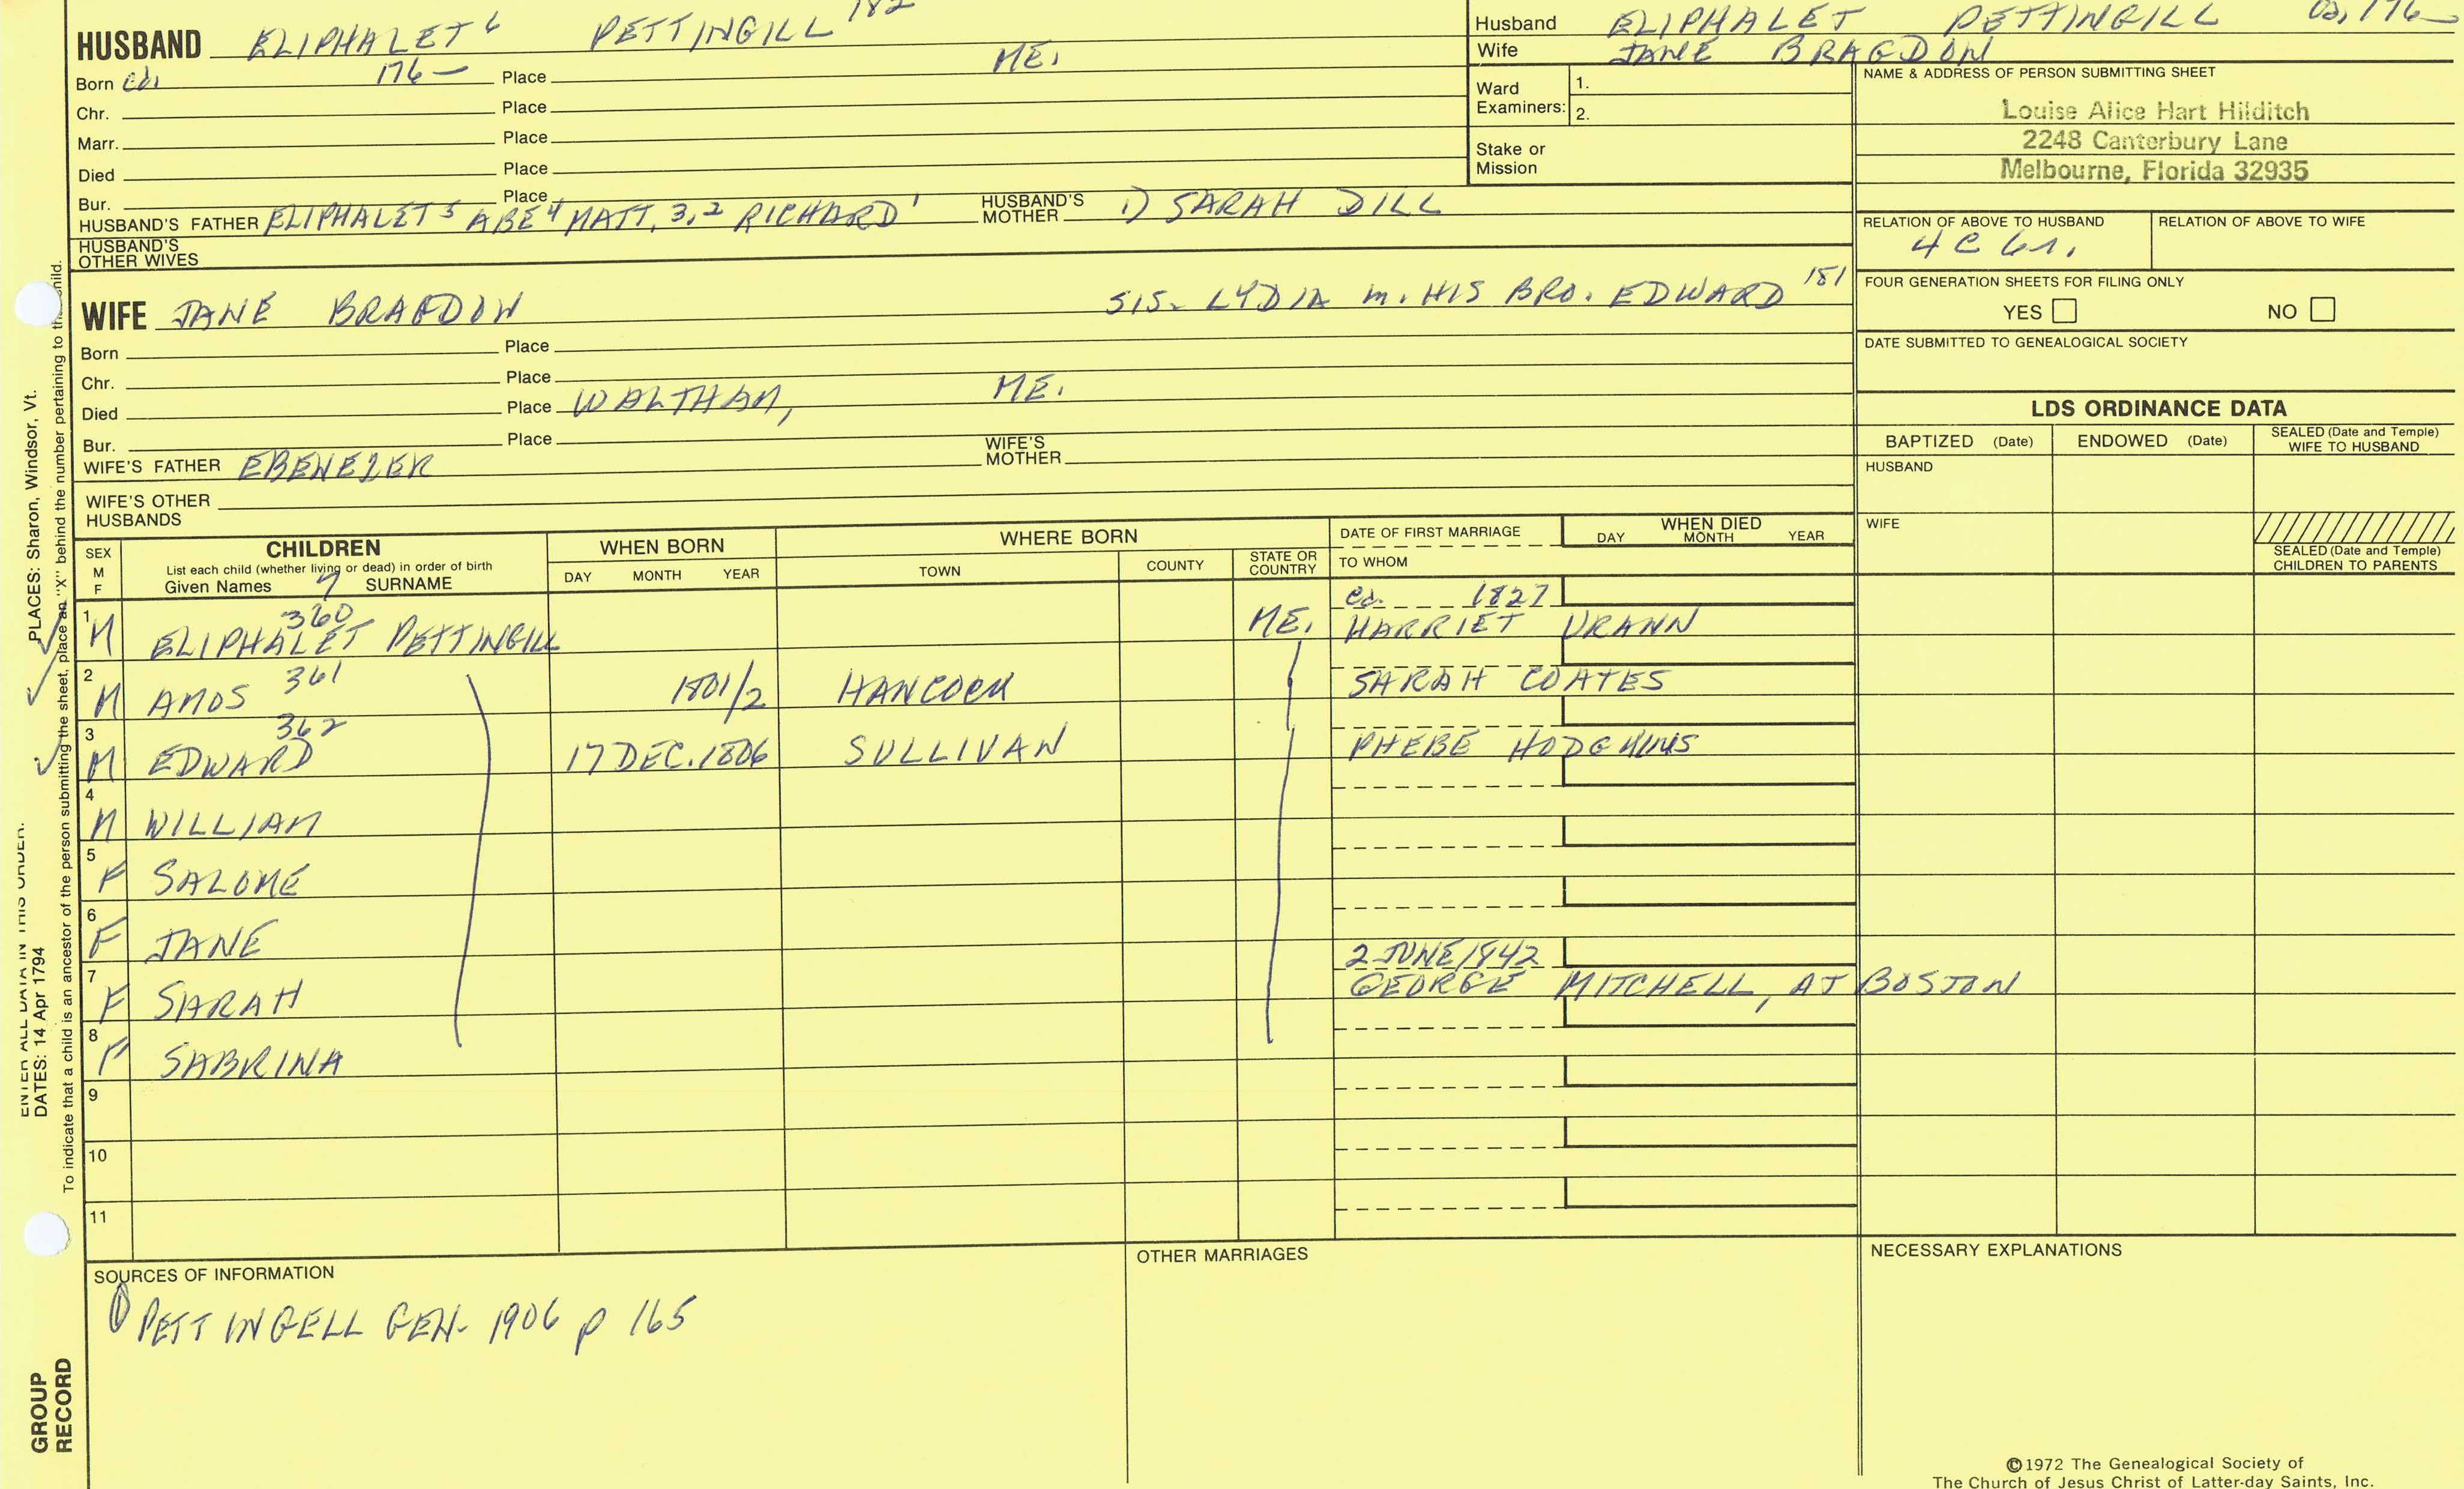 HUSBAND ELIPHALET 6 PETTINGILL 182
Born ca. 176- Place ME.
Chr. Place
Marr. Place
Died Place
Bur. Place
HUSBAND'S FATHER ELIPHALET 5 ABE 4 MATT. 3,2 RICHARD 1 HUSBAND'S MOTHER 1) SARAH DILL
HUSBAND'S OTHER WIVES
WIFE JANE BRAGDON SIS. LYDIA m. HIS BRO. EDWARD 181
Born Place
Chr. Place
Died Place WALTHAM, ME.
Bur. Place
WIFE'S FATHER EBENEZER WIFE'S MOTHER
WIFE'S OTHER HUSBANDS
Husband ELIPHALET PETTINGILL ca. 176-
Wife JANE BRAGDON
Ward Examiners: 1.
2.
Stake or Mission
NAME & ADDRESS OF PERSON SUBMITTING SHEET
Louise Alice Hart Hilditch
2248 Canterbury Lane
Melbourne, Florida 32935
RELATION OF ABOVE TO HUSBAND RELATION OF ABOVE TO WIFE
4 C 6r.
FOUR GENERATION SHEETS FOR FILING ONLY
YES NO
DATE SUBMITTED TO GENEALOGICAL SOCIETY
LDS ORDINANCE DATA
BAPTIZED (Date) ENDOWED (Date) SEALED (Date and Temple) WIFE TO HUSBAND
HUSBAND
WIFE
SEALED (Date and Temple) CHILDREN TO PARENTS
SEX M F CHILDREN WHEN BORN WHERE BORN DATE OF FIRST MARRIAGE WHEN DIED
List each child (whether living or dead) in order of birth
Given Names 7 SURNAME DAY MONTH YEAR TOWN COUNTY STATE OR COUNTRY TO WHOM DAY MONTH YEAR
1 M 360 ELIPHALET PETTINGILL ME. ca. 1827 HARRIET URANN
2 M AMOS 361 1801/2 HANCOCK SARAH COATES
3 M 362 EDWARD 17 DEC. 1806 SULLIVAN PHEBE HODGKINS
4 M WILLIAM
5 F SALOME
6 F JANE
7 F SARAH 2 JUNE 1842 GEORGE MITCHELL, AT BOSTON
8 F SABRINA
9
10
11
SOURCES OF INFORMATION
1 PETTINGELL GEN. 1906 p 165
OTHER MARRIAGES
NECESSARY EXPLANATIONS
©1972 The Genealogical Society of
The Church of Jesus Christ of Latter-day Saints, Inc.
ENTER ALL DATA IN THIS ORDER:
DATES: 14 Apr 1794 PLACES: Sharon, Windsor, Vt.
To indicate that a child is an ancestor of the person submitting the sheet, place an "X" behind the number pertaining to that child.
GROUP
RECORD